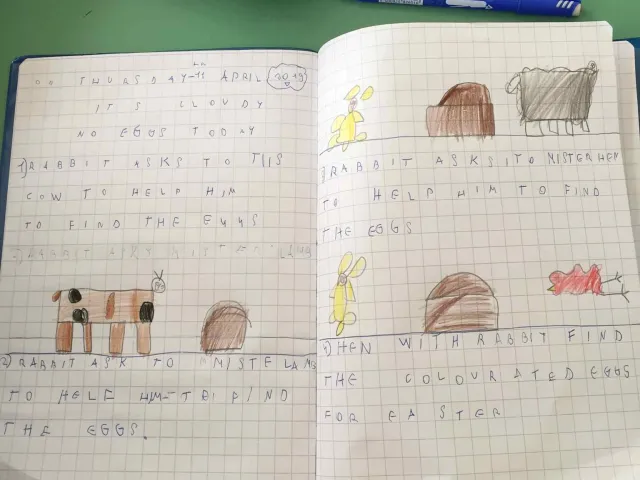 ON THURSDAY-11 TH APRIL 2019
IT'S CLOUDY
NO EGGS TODAY
1) RABBIT ASKS TO THIS
COW TO HELP HIM
TO FIND THE EGGS
2) RABBIT ASK TO MISTE LAMB
TO HELP HIM TO FIND
THE EGGS.
3) RABBIT ASKS ITO MISTER HEN
TO HELP HIM TO FIND
THE EGGS
4) HEN WITH RABBIT FIND
THE COLOURATED EGGS
FOR EASTER